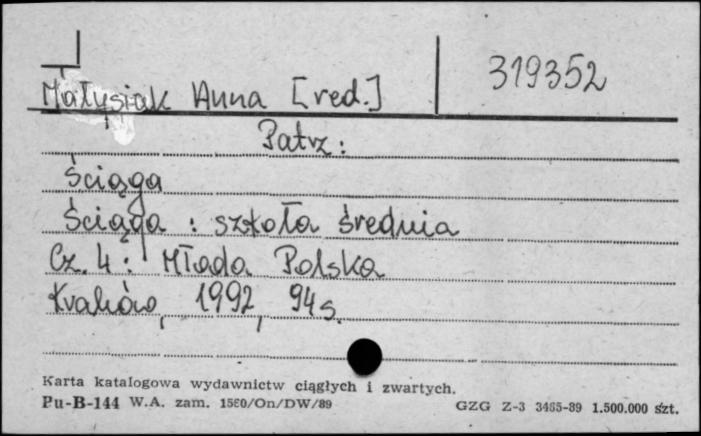 Małysiak Anna [red.] 319352
Patrz:
Ściąga
Ściąga : szkoła średnia
Cz. 4 : Młoda Polska
Kraków, 1992, 94 s.
Karta katalogowa wydawnictw ciągłych i zwartych.
Pu-B-144 W.A. zam. 1560/On/DW/89 GZG Z-3 3465-89 1.500.000 szt.